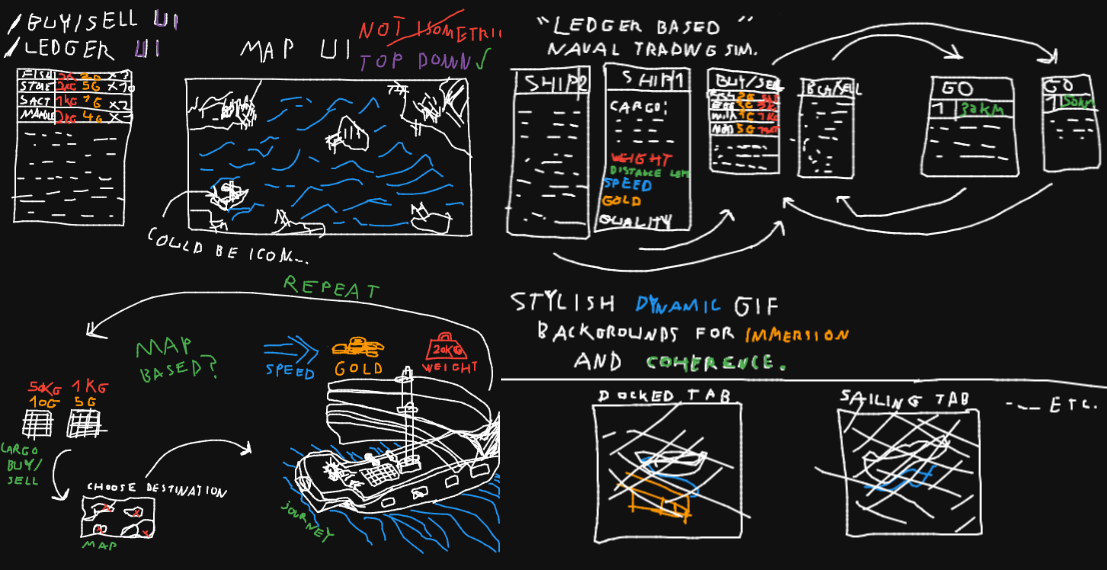 /BUY/SELL UI
/LEDGER UI
FISH 2KG 2G X2
STONE 5KG 5G X10
SALT 1KG 1G X2
2KG 4G
MAP UI
NOT ISOMETRIC
TOP DOWN ✓
COULD BE ICON...
"LEDGER BASED"
NAVAL TRADING SIM.
SHIP2
SHIP1
CARGO:
WEIGHT
DISTANCE LEFT
SPEED
GOLD
QUALITY
BUY/SELL
EGG
EGG
MILK
5G
BUY/SELL
GO
1 32KM
GO
1 50KM
REPEAT
MAP
BASED?
SPEED
GOLD
20KG
WEIGHT
50KG 1KG
10G 5G
CARGO
BUY/
SELL
CHOOSE DESTINATION
MAP
JOURNEY
STYLISH DYNAMIC GIF
BACKGROUNDS FOR IMMERSION
AND COHERENCE.
DOCKED TAB
SAILING TAB
--- ETC.